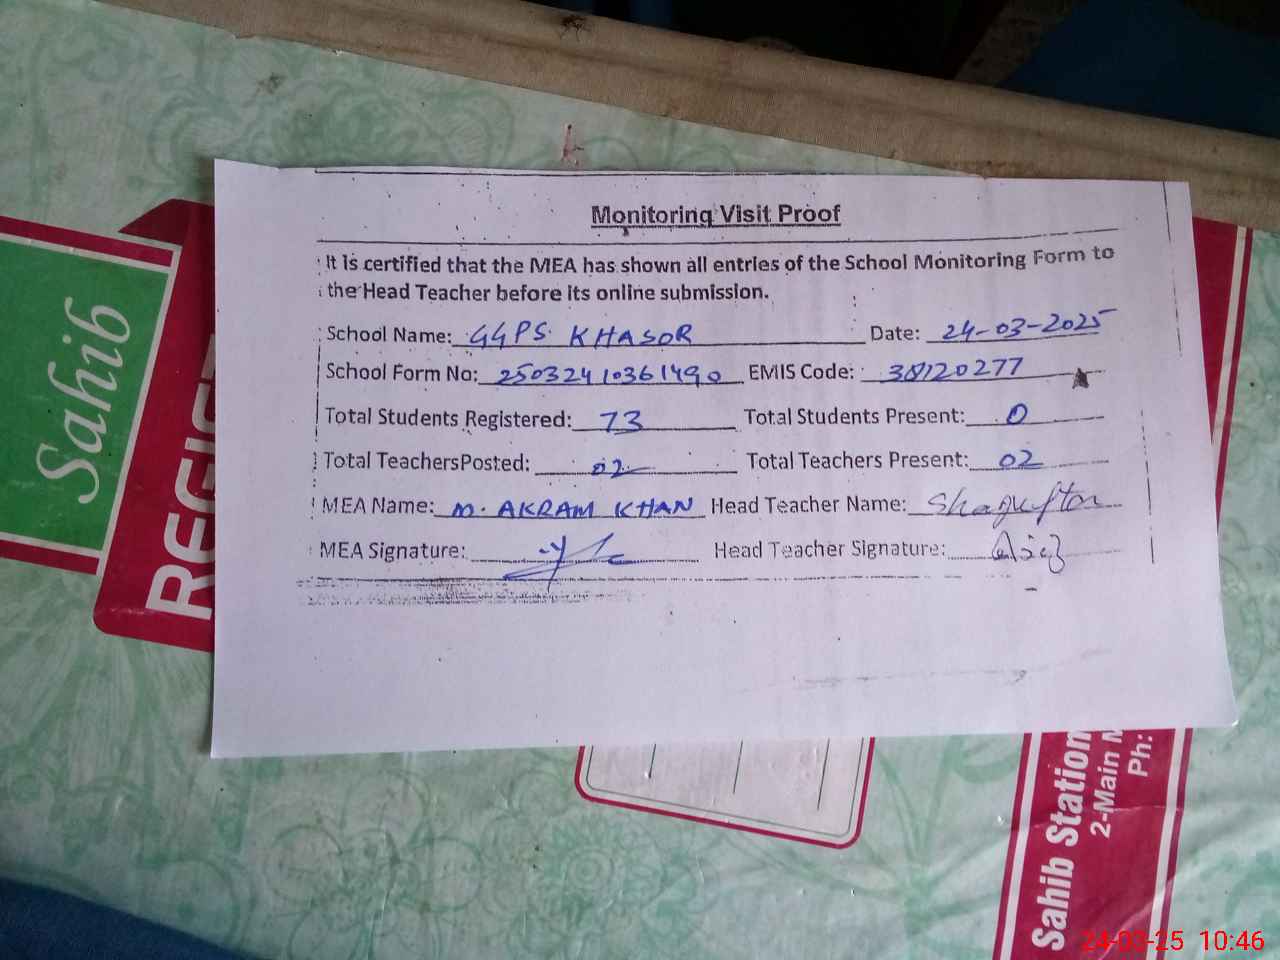 Monitoring Visit Proof
It is certified that the MEA has shown all entries of the School Monitoring Form to
the Head Teacher before its online submission.
School Name: GGPS. KHASOR Date: 24-03-2025
School Form No: 25032410361490 EMIS Code: 38120277
Total Students Registered: 73 Total Students Present: 0
Total TeachersPosted: 02 Total Teachers Present: 02
MEA Name: M. AKRAM KHAN Head Teacher Name: Shagufta
MEA Signature: Head Teacher Signature:
Sahib
REGIST
Sahib Station
2-Main M
Ph:
24-03-25 10:46